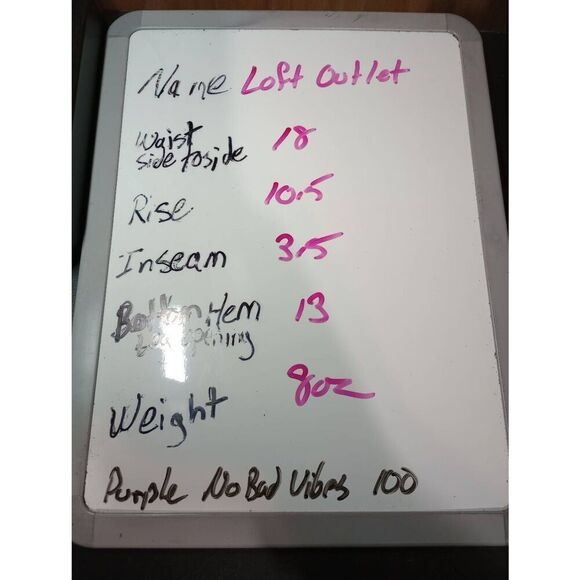 Name Loft Outlet
Waist 18
side toside
Rise 10.5
Inseam 3.5
Bottom Hem 13
opening
Weight 8oz
Purple No Bad Vibes 100